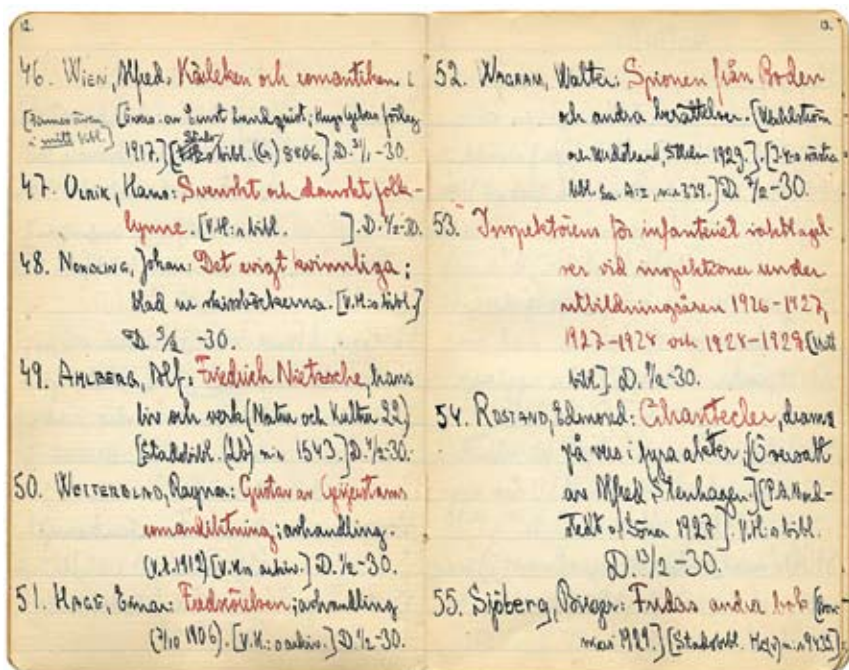 12.
46. WIEN, Alfred. Kärleken och romantiken.
[Finnes även [Övers. av Ernst Lundquist; Hugo Gebers förlag
i mitt bibl.] 1917.] [Stads bibl. (G) 8406.] D. 31/1 -30.
47. ULRIK, Hans: Svenskt och danskt folk-
lynne. [V.H:s bibl. ]. D. 1/2 -30.
48. NORDLING, Johan: Det evigt kvinnliga;
blad ur skissböckerna. [V.H:s bibl.]
D. 3/2 -30.
49. AHLBERG, Alf: Friedrich Nietzsche, hans
liv och verk (Natur och Kultur 22)
[Stadsbibl. (Lb) n:r 1543.] D. -30.
50. WETTERBLAD, Ragnar: Gustav av Geijerstams
romandiktning; avhandling.
(V.t. 1912) [V.H:s arkiv.] D. -30.
51. HAGE, Einar: Fredsrörelsen; avhandling
(7/10 1906). [V.H:s arkiv.] D. -30.
13.
52. WAGRAM, Walter: Spionen från Boden
och andra berättelser. [Wahlström
och Widstrand, Sthlm 1929.]. [
bibl. n:r 339.] D. -30.
53. Inspektörens för infanteriet iakttagel-
ser vid inspektioner under
utbildningsåren 1926-1927,
1927-1928 och 1928-1929 [Mitt
bibl.]. D. -30.
54. ROSTAND, Edmond: Chantecler, drama
på vers i fyra akter; [Översatt
av Alfred Stenhagen.] [P.A. Nord-
stedt o. Söner 1927]. V.H:s bibl.
D. -30.
55. Sjöberg, Birger: Fridas andra bok [Bon-
niers 1929.] [Stadsbibl. n:r 9435]: